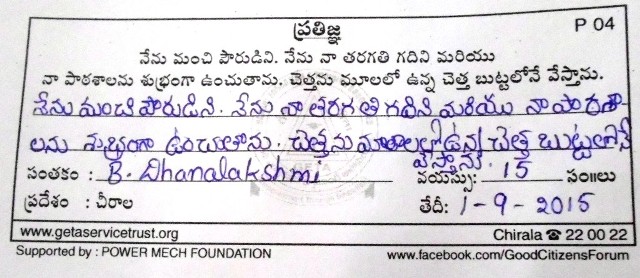 ప్రతిజ్ఞ
P 04
నేను మంచి పౌరుడిని. నేను నా తరగతి గదిని మరియు
నా పాఠశాలను శుభ్రంగా ఉంచుతాను. చెత్తను మూలలో ఉన్న చెత్త బుట్టలోనే వేస్తాను.
నేను మంచి పౌరుడిని. నేను నా తరగతి గదిని మరియు నా పాఠశా
లను శుభ్రంగా ఉంచుతాను. చెత్తను మూలలో ఉన్న చెత్త బుట్టలోనే
వేస్తాను.
సంతకం : B. Dhanalakshmi వయస్సు: 15 సం॥లు
ప్రదేశం : చీరాల తేదీ: 1-9-2015
www.getaservicetrust.org Chirala ☎ 22 00 22
Supported by : POWER MECH FOUNDATION www.facebook.com/GoodCitizensForum